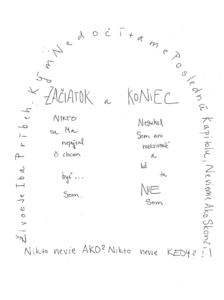 Život Je Iba Príbeh. Kým Nedočítame Poslednú Kapitolu, Nevieme Ako Skončí...!
ZAČIATOK a KONIEC
NIKTO
sa Ma
nepýtal
či chcem
byť...
Som.
Netušil
Som ani
neexistoval
a
už
tu
NIE
Som.
Nikto nevie AKO? Nikto nevie KEDY?